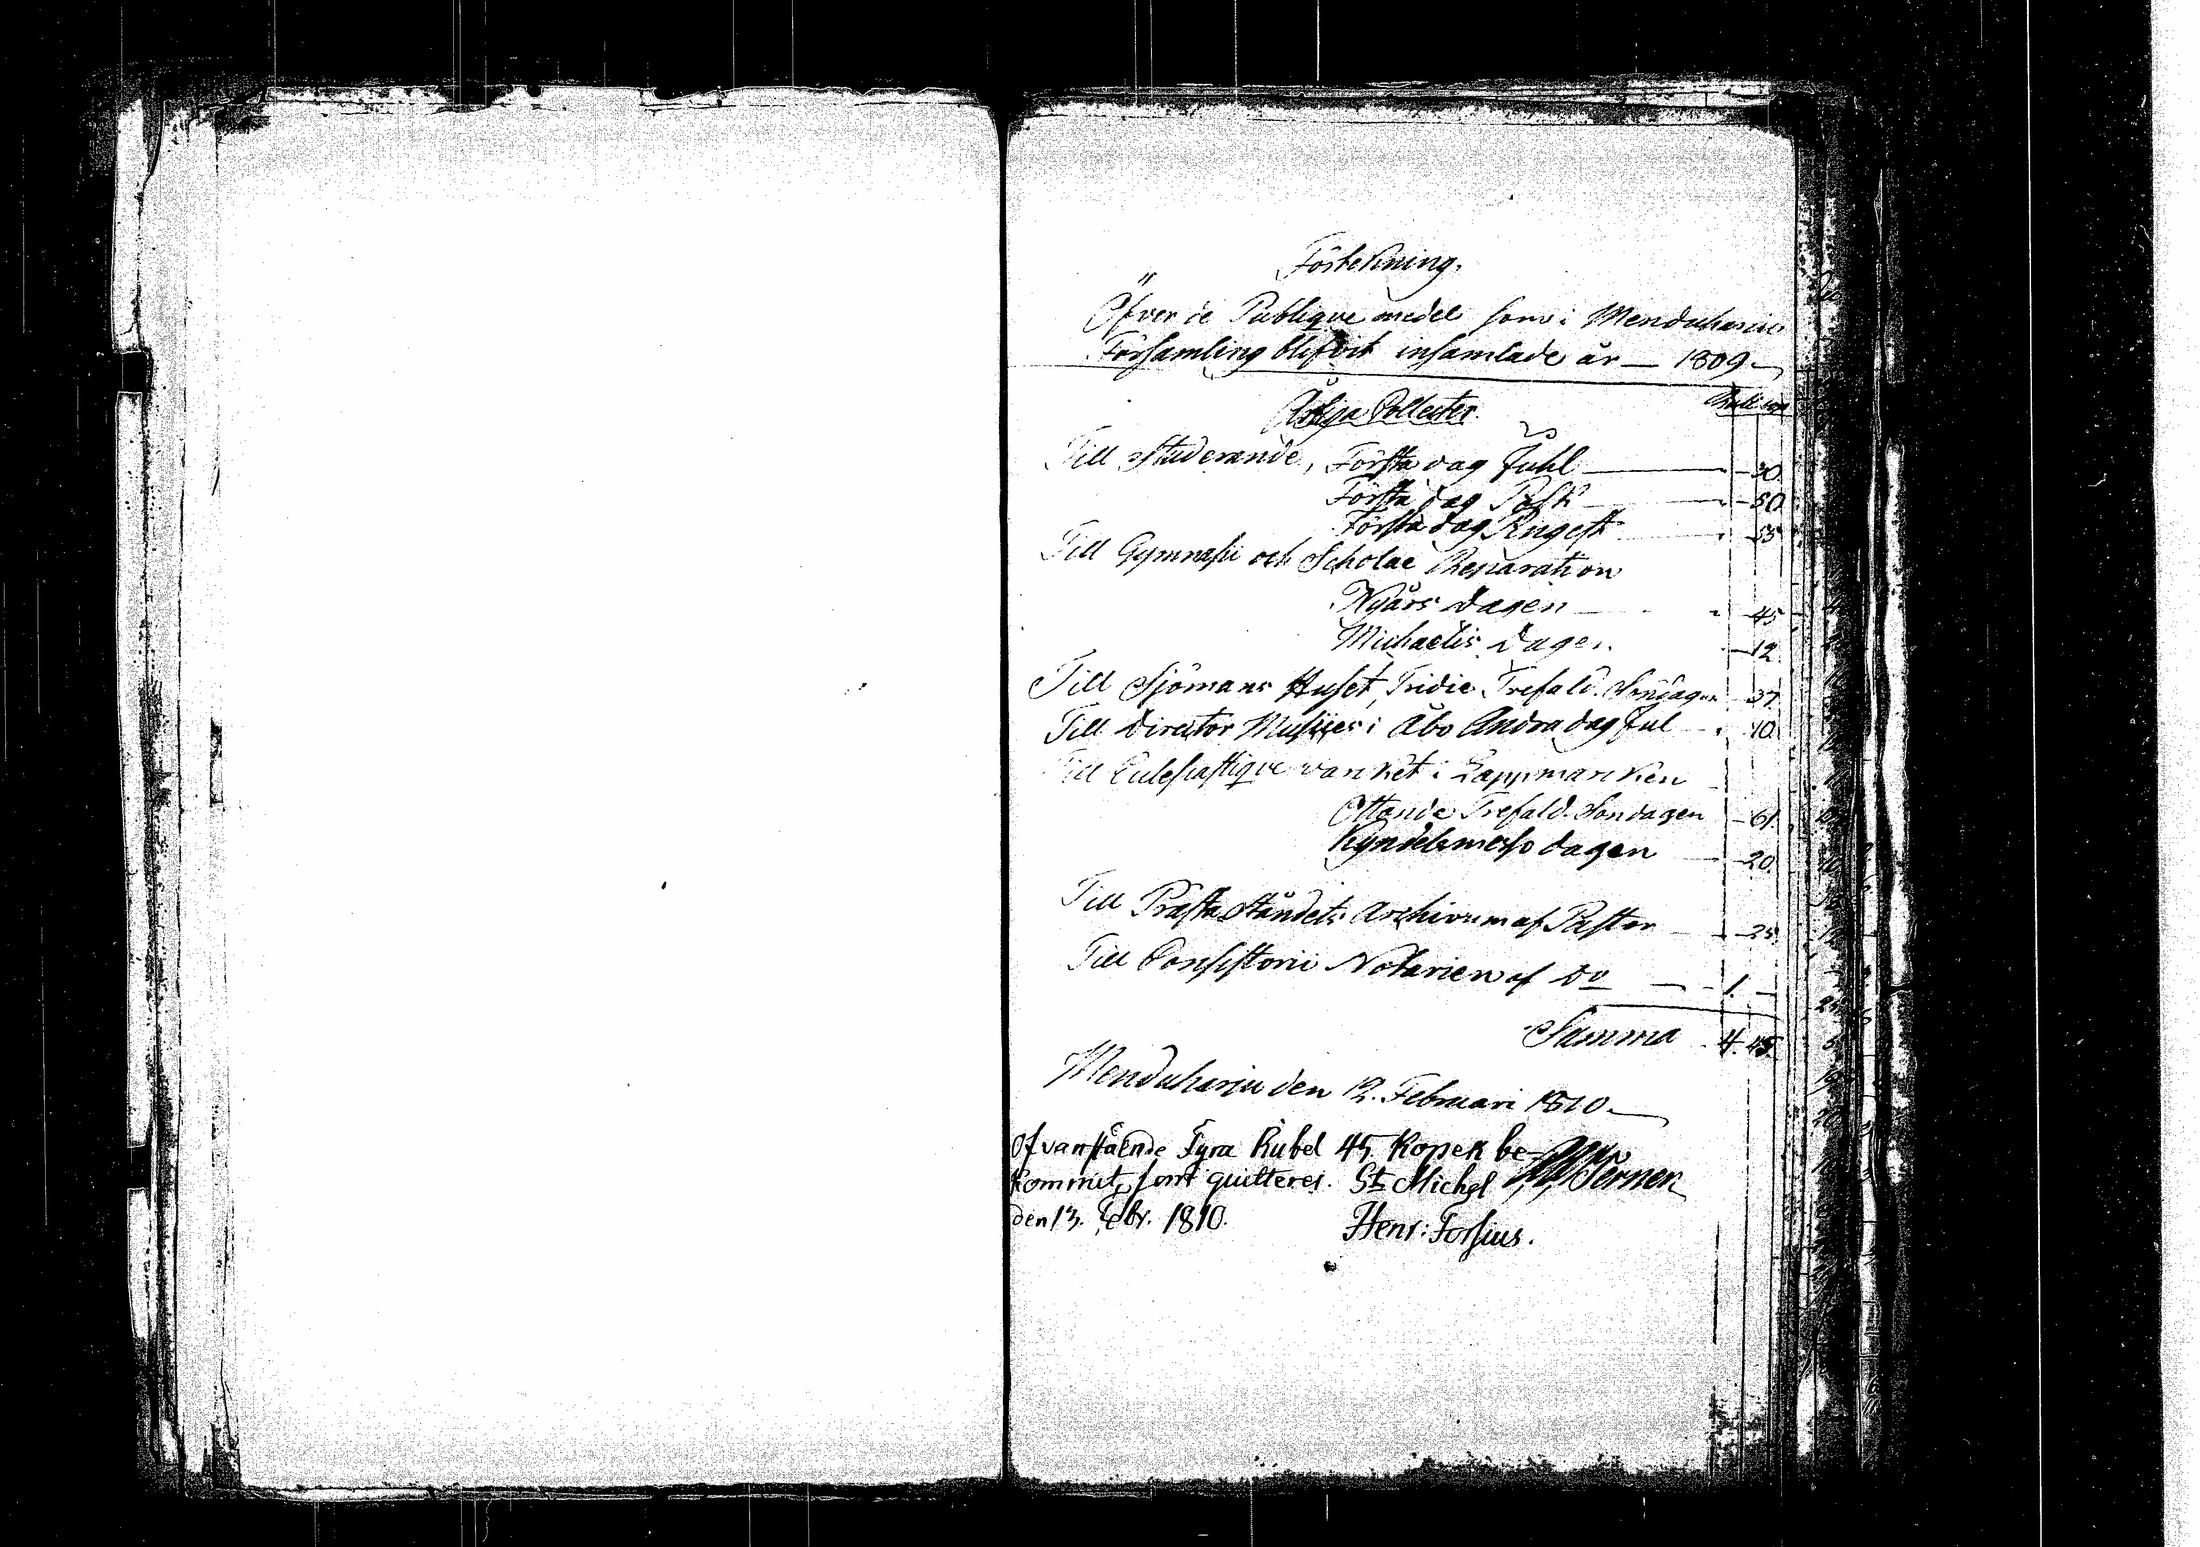 Förtekning.
Öfver de Publique medel som i Mendüharju
Församling blifvit insamlade år — 1809.
Årliga Collecter.
Till Studerande, Första dag Juhl — 30.
Första dag Påsk — 50
Första dag Pingest — 55
Till Gymnasii och Scholae Reparation
Nyårs dagen — 45
Michaelis dagen — 12
Till Sjömans Huset, Tridie Trefald. Söndagen 37
Till Director Musices i Åbo Andra dag Jul — 10
Till Ecclesiastique värket i Lappmarcken
Ottonde Trefald. Söndagen — 61.
Kyndelsmesso dagen — 20.
Till Prästa Ståndets Archivum af Pastor — 25
Till Consistorii Notarien af Do — 1. —
Summa 4. 45.
Mendüharju den 12. Februari 1810.
Ofvanstående Fyra Rubel 45 Kopek be-
kommit, som quitteres. St. Michel
Ternen
den 13. Febr. 1810. Henr: Forsius.